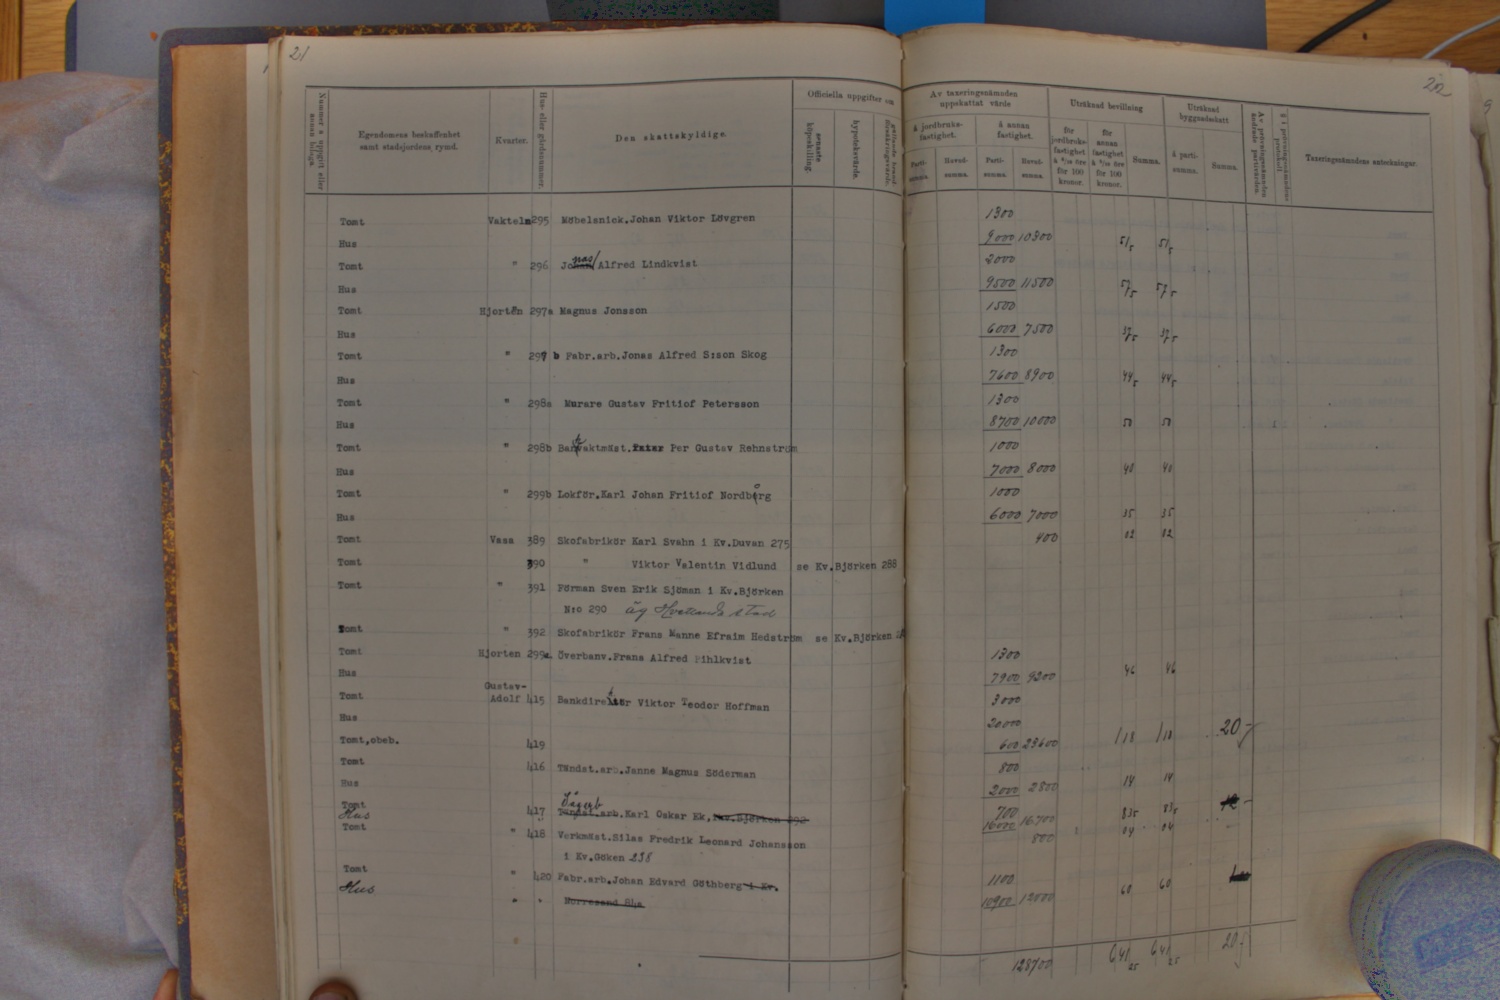 21
22
Nummer å uppgift eller annan bilaga.
Egendomens beskaffenhet samt stadsjordens rymd.
Kvarter.
Hus- eller gårdsnummer.
Den skattskyldige.
Officiella uppgifter om
senaste köpeskilling.
hypoteksvärde.
Av taxeringsnämnden uppskattat värde
å jordbruksfastighet.
å annan fastighet.
Parti-summa.
Huvud-summa.
Parti-summa.
Huvud-summa.
Uträknad bevillning
för jordbruksfastighet
för annan fastighet
för 100 kronor.
för 100 kronor.
Summa.
Uträknad
å parti-summa.
Summa.
Av prövningsnämnden ändrade partivärden.
Taxeringsnämndens anteckningar.
Tomt Vakteln 295 Möbelsnick.Johan Viktor Lövgren 1300
Hus 9000 10300 51/5 51/5
Tomt " 296 Jonas Alfred Lindkvist 2000
Hus 9500 11500 57/5 57/5
Tomt Hjorten 297a Magnus Jonsson 1500
Hus 6000 7500 37/5 37/5
Tomt " 297 b Fabr.arb.Jonas Alfred S:son Skog 1300
Hus 7600 8900 44/5 44/5
Tomt " 298a Murare Gustav Fritiof Petersson 1300
Hus 8700 10000 50 50
Tomt " 298b Banvaktmäst. Per Gustav Rehnström 1000
Hus 7000 8000 40 40
Tomt " 299b Lokför.Karl Johan Fritiof Nordberg 1000
Hus 6000 7000 35 35
Tomt Vasa 389 Skofabrikör Karl Svahn i Kv.Duvan 275 400 02 02
Tomt 390 " Viktor Valentin Vidlund se Kv.Björken 288
Tomt " 391 Förman Sven Erik Sjöman i Kv.Björken
N:o 290 äg Hvetlanda stad
Tomt " 392 Skofabrikör Frans Manne Efraim Hedström se Kv.Björken
Tomt Hjorten 299a Överbanv.Frans Alfred Pihlkvist 1300
Hus 7900 9200 46 46
Gustav-
Tomt Adolf 415 Bankdirektör Viktor Teodor Hoffman 3000
Hus 20000
Tomt,obeb. 419 600 23600 118 118 20.-
Tomt 416 Tändst.arb.Janne Magnus Söderman 800
Hus 2000 2800 14 14
Tomt 417 Tändst.arb.Karl Oskar Ek, Kv.Björken 292 700
Hus 16000 16700 835 835
Tomt " 418 Verkmäst.Silas Fredrik Leonard Johansson 800 04 04
i Kv.Göken 238
Tomt " 420 Fabr.arb.Johan Edvard Göthberg i Kv. 1100
Hus 10900 12000 60 60
" " Norresand 84a
128700 641 25 641 25 20.-